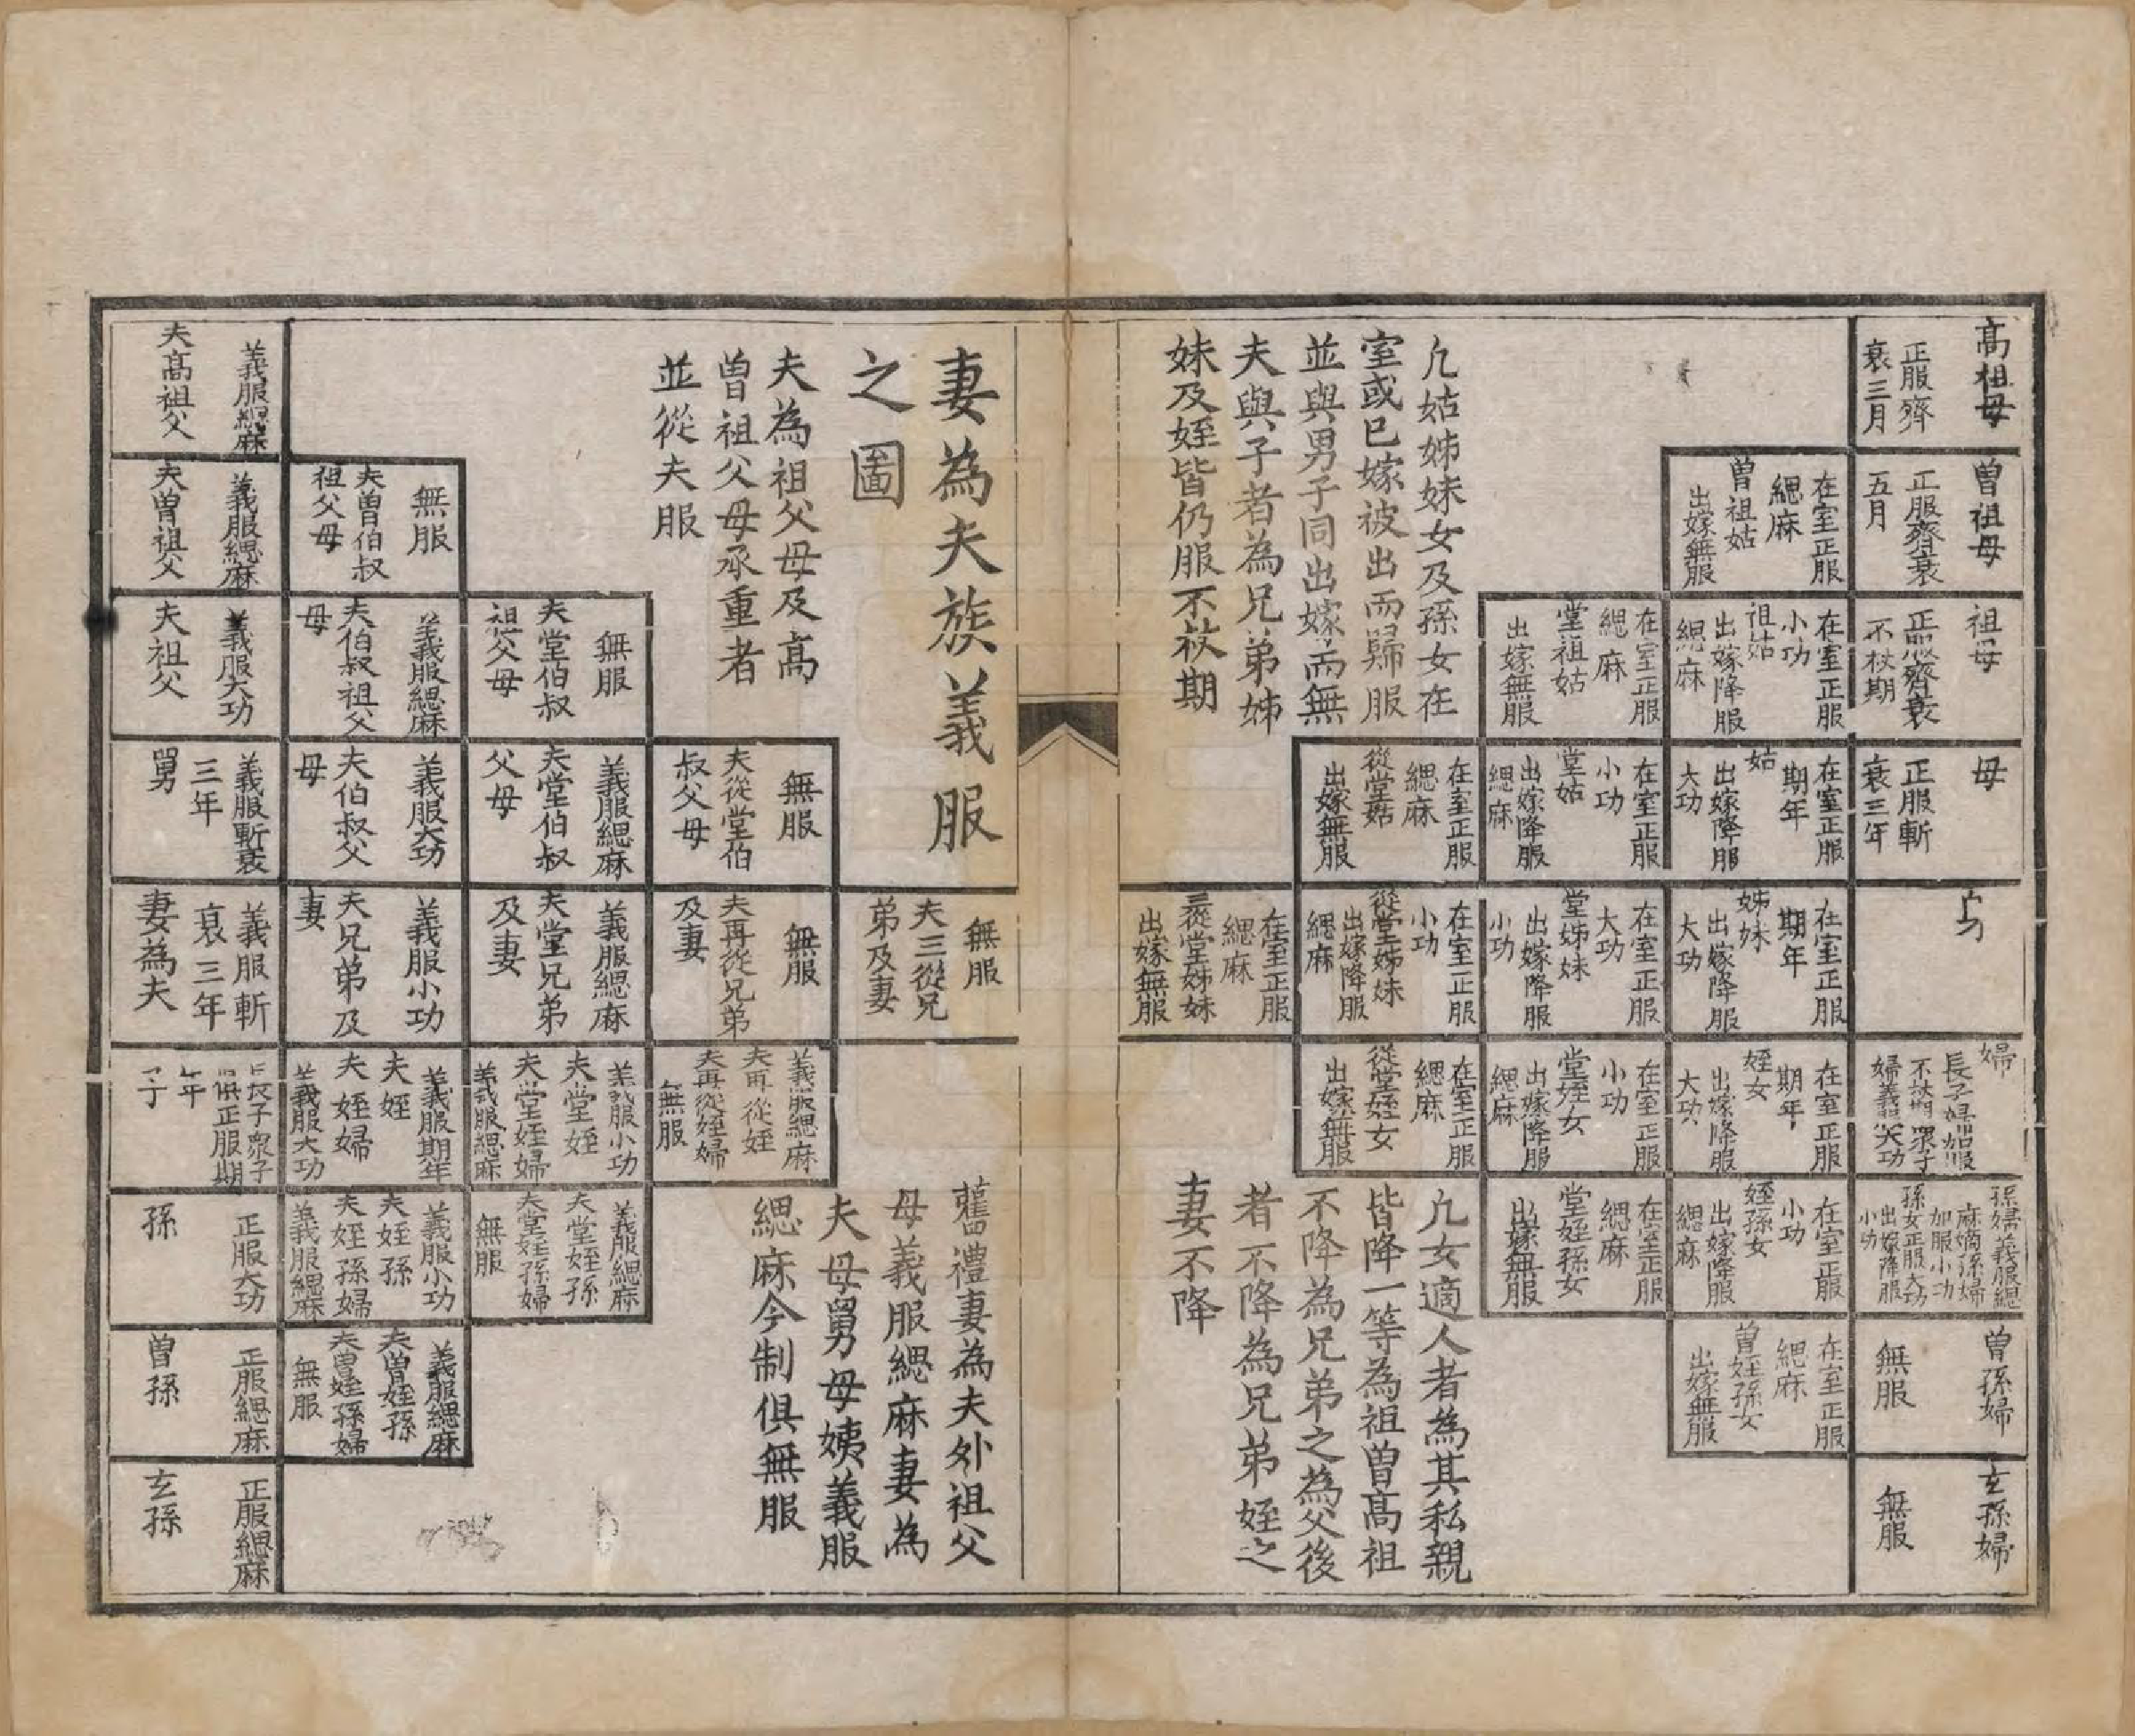 高祖母
正服齊
衰三月
曾祖母
正服齊衰
五月
在室正服
緦麻
曾祖姑
出嫁無服
祖母
正服齊衰
不杖期
在室正服
小功
祖姑
出嫁降服
緦麻
在室正服
緦麻
堂祖姑
出嫁無服
母
正服斬
衰三年
在室正服
期年
姑
出嫁降服
大功
在室正服
小功
堂姑
出嫁降服
緦麻
在室正服
緦麻
從堂姑
出嫁無服
在室正服
期年
姊妹
出嫁降服
大功
在室正服
大功
堂姊妹
出嫁降服
小功
在室正服
小功
從堂姊妹
出嫁降服
緦麻
在室正服
緦麻
三從堂姊妹
出嫁無服
婦
長子婦加服
不杖期眾子
婦義服大功
在室正服
期年
姪女
出嫁降服
大功
在室正服
小功
堂姪女
出嫁降服
緦麻
在室正服
緦麻
從堂姪女
出嫁無服
孫婦義服緦
麻嫡孫婦
加服小功
孫女正服大功
出嫁降服
小功
在室正服
小功
姪孫女
出嫁降服
緦麻
在室正服
緦麻
堂姪孫女
出嫁無服
曾孫婦
無服
在室正服
緦麻
曾姪孫女
出嫁無服
玄孫婦
無服
凡姑姊妹女及孫女在
室或已嫁被出而歸服
並與男子同出嫁而無
夫與子者為兄弟姊
妹及姪皆仍服不杖期
凡女適人者為其私親
皆降一等為祖曾高祖
不降為兄弟之為父後
者不降為兄弟姪之
妻不降
妻為夫族義服
之圖
夫為祖父母及高
曾祖父母承重者
並從夫服
義服緦麻
夫高祖父
無服
夫曾伯叔
祖父母
義服緦麻
夫曾祖父
無服
夫堂伯叔
祖父母
義服緦麻
夫伯叔祖父
母
義服大功
夫祖父
無服
夫從堂伯
叔父母
義服緦麻
夫堂伯叔
父母
義服大功
夫伯叔父
母
義服斬衰
三年
舅
無服
夫三從兄
弟及妻
無服
夫再從兄弟
及妻
義服緦麻
夫堂兄弟
及妻
義服小功
夫兄弟及
妻
義服斬
衰三年
妻為夫
義服緦麻
夫再從姪
夫再從姪婦
無服
義服小功
夫堂姪
夫堂姪婦
義服緦麻
義服期年
夫姪
夫姪婦
義服大功
長子眾子
俱正服期
年
子
義服緦麻
夫堂姪孫
夫堂姪孫婦
無服
義服小功
夫姪孫
夫姪孫婦
義服緦麻
正服大功
孫
義服緦麻
夫曾姪孫
夫曾姪孫婦
無服
正服緦麻
曾孫
正服緦麻
玄孫
舊禮妻為夫外祖父
母義服緦麻妻為
夫母舅母姨義服
緦麻今制俱無服